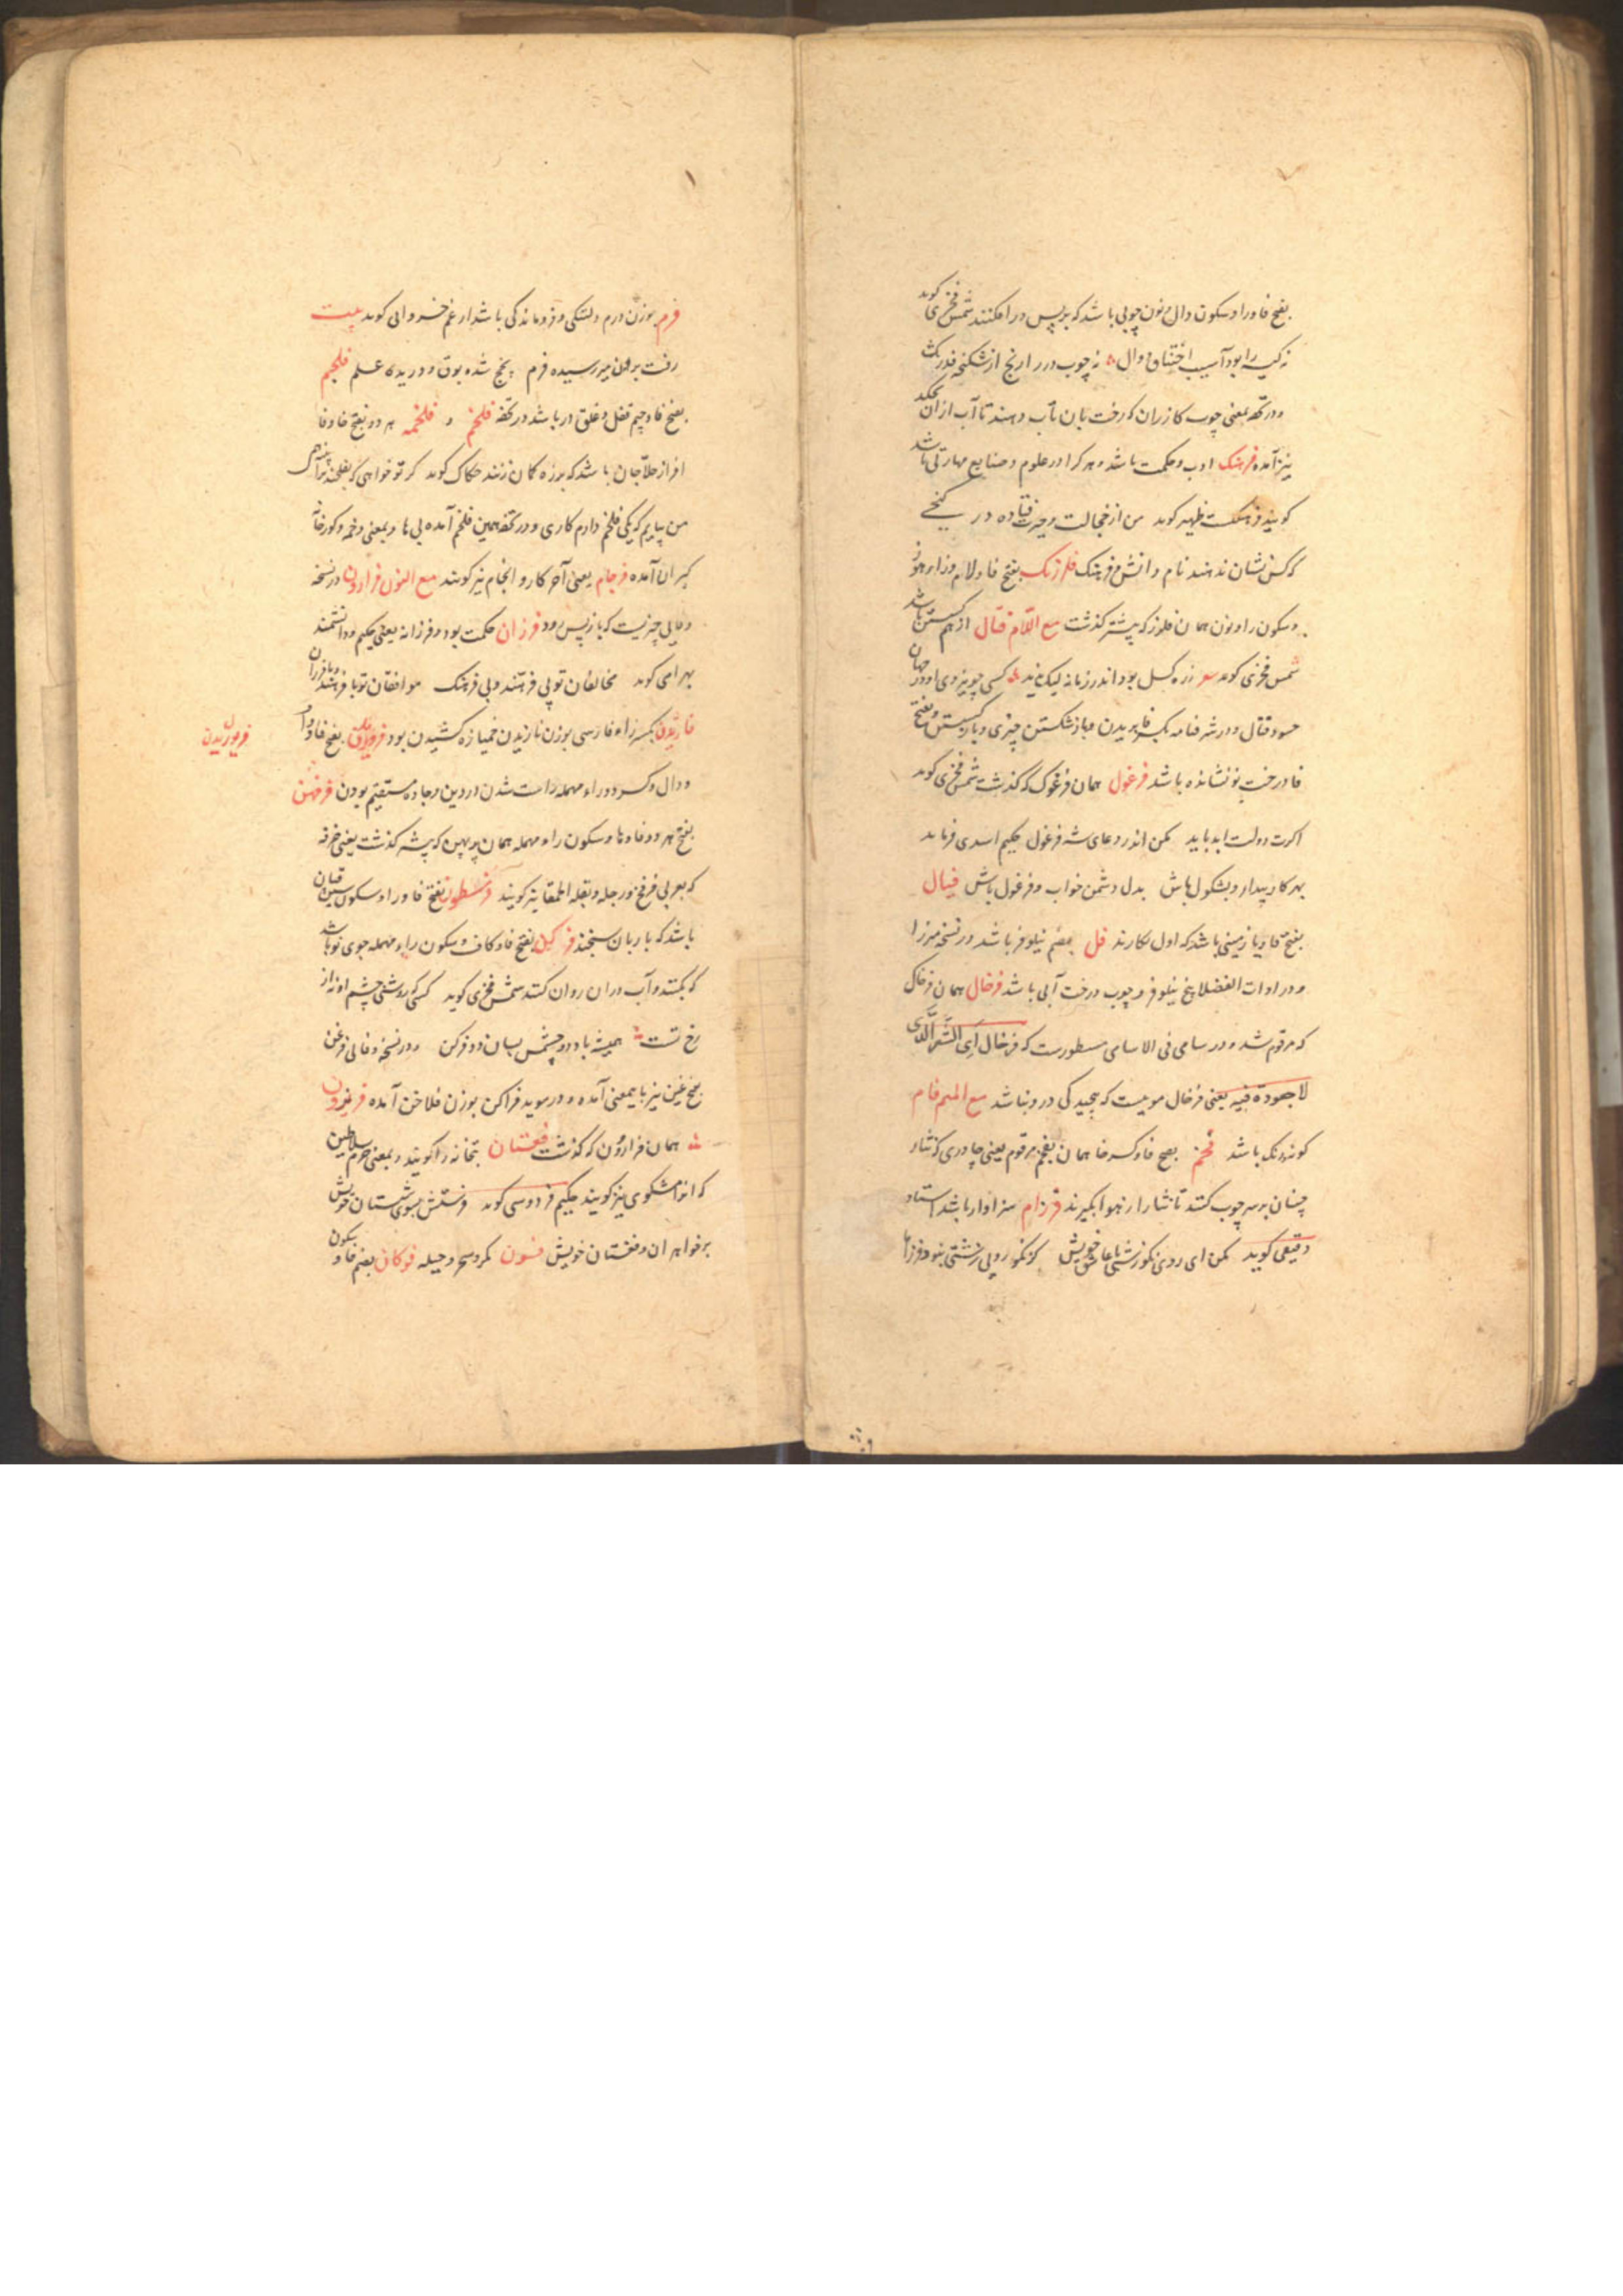 بفتح فا ورا و سکون دال و نون چوبی باشد که بر پس در افکنند شمس فخری کوید
نه کیسه را بود آسیب اختناق و دال نه چوب در را رنج از شکنجه فدرنک
و در تحفه بمعنی چوب کازران که رخت بان تاب دهند تا آب ازان بچکد
نیز آمده فرهنک ادب و حکمت باشد و هر کرا در علوم و صنایع مهارتی باشد
کویند فرهنکیست ظهیر کوید من از خجالت و حیرت فتاده در کنجی
که کس نشان ندهند نام دانش و فرهنک فلرزنک بفتح فا و لام و زاء هوز
و سکون را و نون همان فلرز که پیشتر کذشت مع اللام فتال از هم کسستن باشد
شمس فخری کوید زره کسل بود اندر زمانه لیک نماند کسی چو نیزه وی او در جهان
حسود فتال و در شرفنامه بکسر فا بریدن و باز شکستن چیزی و باز کسستن و بفتح
فا درخت نو نشانده باشد فرغول همان فرغوک که کذشت شمس فخری کوید
اکرت دولت ابد باید مکن اندر دعای شه فرغول حکیم اسدی فرماید
بهر کار بیدار و بشکول باش بدل دشمن خواب و فرغول باش فیال
بفتح فا و یا زمینی باشد که اول بکارند فل بضم نیلوفر باشد در نسخه میرزا
و در ادات الفضلا بیخ نیلوفر و چوب درخت آبی باشد فرخال همان فرخاک
که مرقوم شد و در سامی فی الاسامی مسطورست که فرخال ای الشعر الذی
لا جعودة فیه یعنی فرخال موییست که پیچیدکی درو نباشد مع المیم فام
کونه و رنک باشد فخم بفتح فا و کسر خا همان بفخم مرقوم یعنی چادری که نثار
چینان بر سر چوب کنند تا نثار از هوا بکیرند فرزام سزاوار باشد استاد
دقیقی کوید مکن ای روی نکو زشتی با عاشق خویش کز نکو رویی زشتی نبود فرزاما
فرم بوزن درم دلتنکی و فروماندکی باشد از غم خسروانی کوید بیت
رفت برون میر رسیده فرم پخج شده بوق و دریده علم فلجم
بفتح فا و جیم قفل و غلق در باشد در تحفه فلخم و فلخمه هر دو بفتح فا و خا
افزار حلاجان باشد که بر زه کمان زنند حکاک کوید کر تو خواهی که بفلخند ترا پنبه همی
من بیایم که یکی فلخم دارم کاری و در تحفه همین فلخم آمده بی ها و بمعنی دخمه و کورخانه
کبران آمده فرجام یعنی آخر کار و انجام نیز کویند مع النون فرارون در نسخه
وفایی چیزیست که باز پس رود فرزان حکمت بود و فرزانه یعنی حکیم و دانشمند
بهرامی کوید مخالفان تو بی فرهند و بی فرهنک موافقان تو با فرهند و با فرزان
فاژیدن بکسر زاء فارسی بوزن نازیدن خمیازه کشیدن بود فروریدن بفتح فا و واو
و دال و کسر دو راء مهمله راست شدن در دین و جاده مستقیم بودن فرفهن
بفتح هر دو فا و ها و سکون راء مهمله همان پرپهن که پیشتر کذشت یعنی خرفه
که بعربی فرفخ و رجله و بقلة الحمقا نیز کویند فرسطون بفتح فا و را و سکون سین قپان
باشد که بار بان سنجند فرکن بفتح فا و کاف و سکون راء مهمله جوی نو باشد
که بکنند و آب دران روان کنند شمس فخری کوید کسی که روشنی چشم او نه از
رخ تست همیشه باد دو چشمش بسان دو فرکن و در نسخه وفائی فرغن
بفتح غین نیز باینمعنی آمده و در موید فراکن بوزن فلاخن آمده فریرون
همان فرارون که کذشت فغستان بتخانه را کویند و بمعنی حرم سلاطین
که انرا مشکوی نیز کویند حکیم فردوسی کوید فرستش بسوی شبستان خویش
بر خواهران و فغستان خویش فسون مکر و سحر و حیله فوکان بضم فا و سکون
فرموریدن